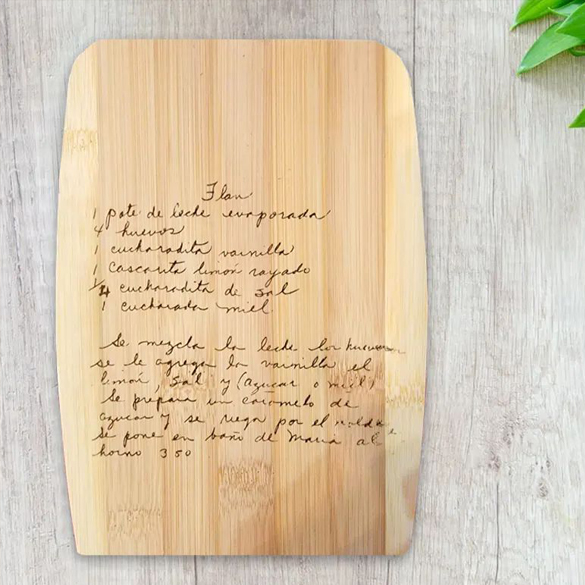 Flan
1 pote de leche evaporada
4 huevos
1 cucharadita vainilla
1 cascarita limón rayado
1/4 cucharadita de sal
1 cucharada miel
Se mezcla la leche los huevos
se le agrega la vainilla el
limón, sal y (azucar o miel)
Se prepara un caramelo de
azucar y se riega por el molde
se pone en baño de Maria al
horno 350